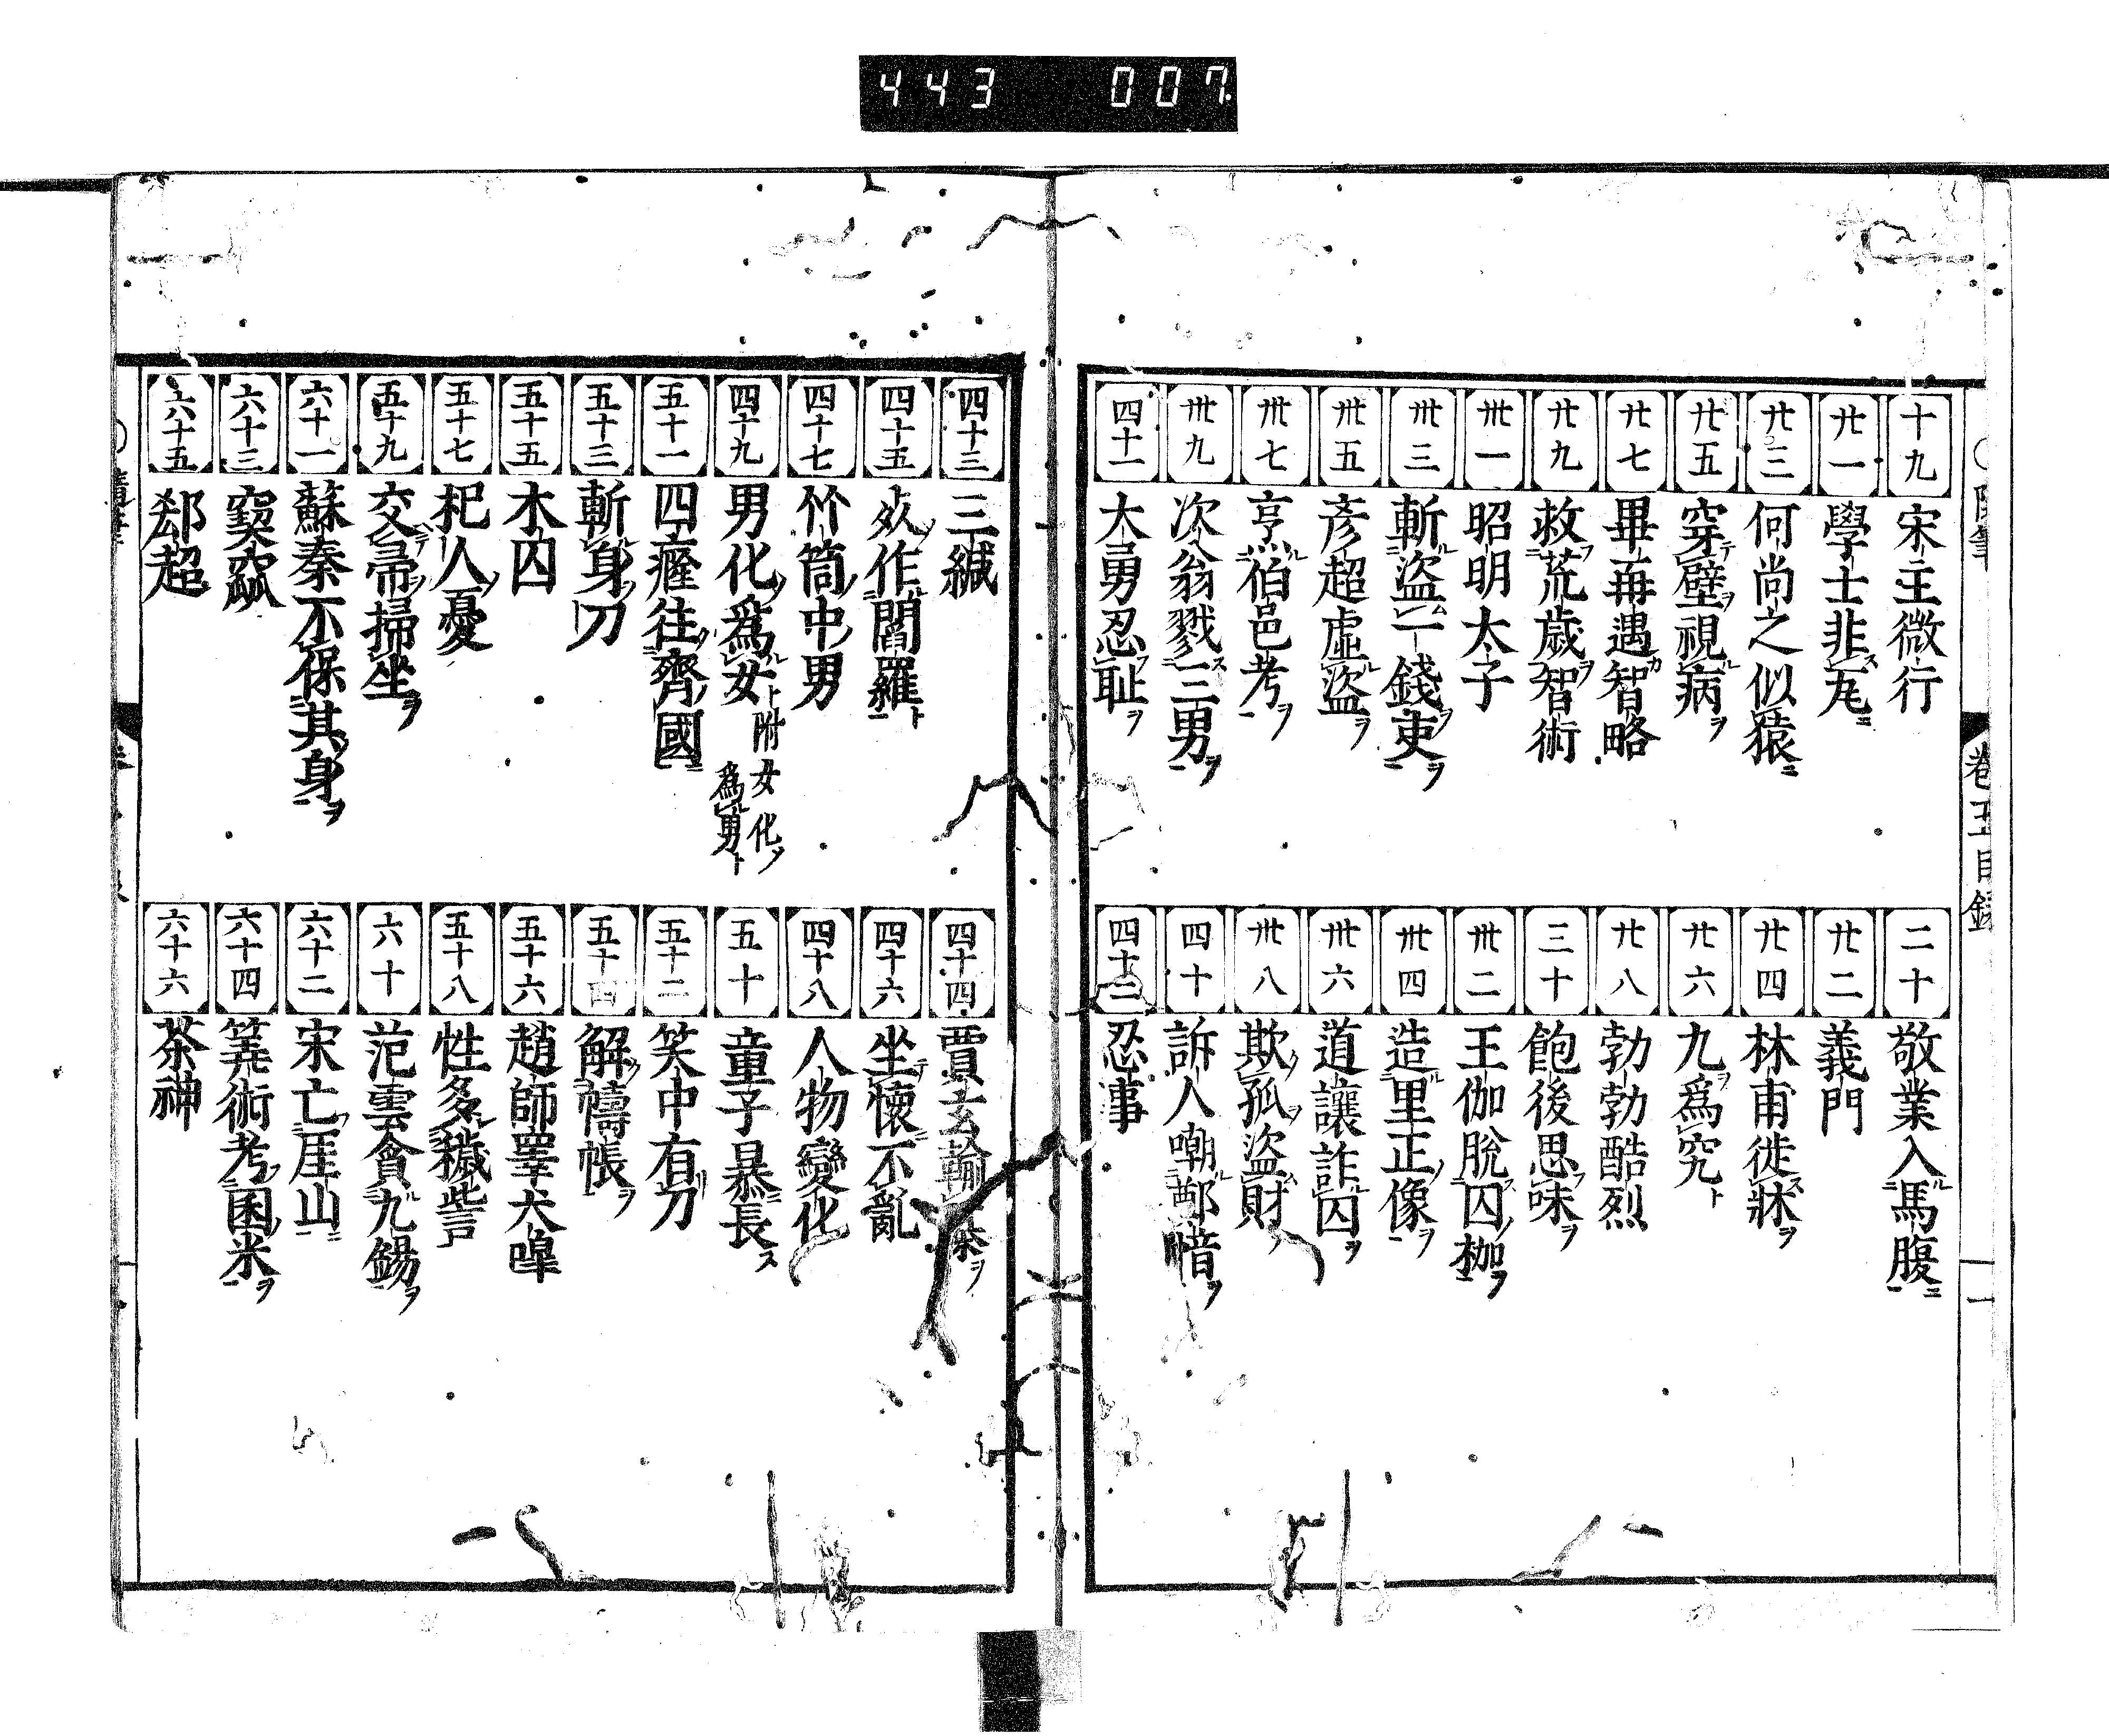 443 007
卷五目録
十九 宋主微行
二十 敬業入馬腹
廿一 學士非凢
廿二 義門
廿三 何尚之似猿
廿四 林甫徙牀
廿五 穿壁視病
廿六 九爲究
廿七 畢再遇智略
廿八 勃勃酷烈
廿九 救荒歲智術
三十 飽後思味
卅一 昭明太子
卅二 王伽脫囚枷
卅三 斬盜一錢吏
卅四 造里正像
卅五 彥超虛盜
卅六 道讓詐囚
卅七 烹伯邑考
卅八 欺孤盜財
卅九 次翁戮三男
四十 訴人嘲鄙慳
四十一 大勇忍耻
四十二 忍事
四十三 三緘
四十四 賈玄
四十五 作閻羅
四十六 坐懷不亂
四十七 竹筒中男
四十八 人物變化
四十九 男化爲女 附女化爲男
五十 童子暴長
五十一 四癡往齊國
五十二 笑中有刀
五十三 斬身刀
五十四 解幬帳
五十五 木囚
五十六 趙師睪犬嘷
五十七 杞人憂
五十八 性多穢訾
五十九 交帚掃坐
六十 范雲貪九錫
六十一 蘇秦不保其身
六十二 宋亡厓山
六十三 窫窳
六十四 筭術考囷米
六十五 郄超
六十六 茶神